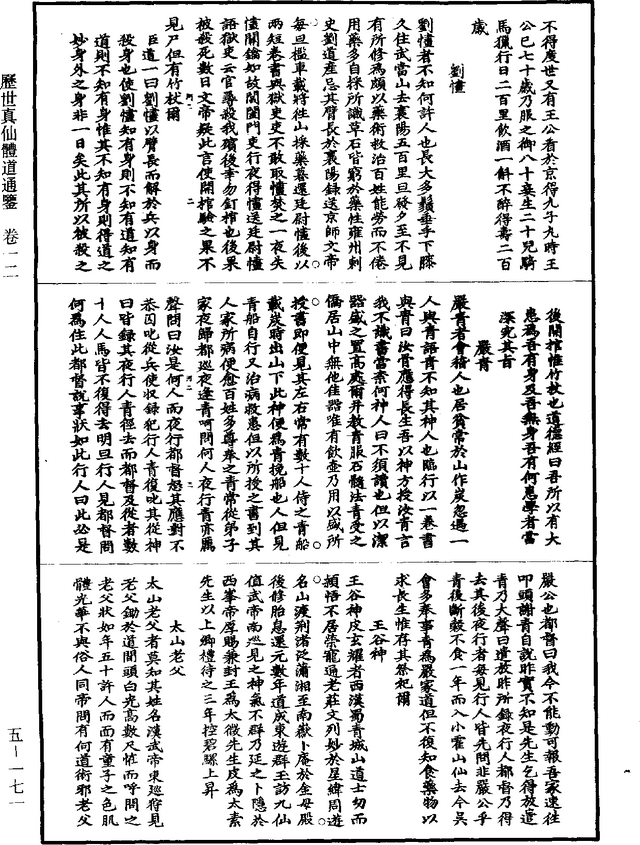 不得度世又有王公看於京得九子九時王
公已七十歲乃服之御八十妾生二十兒騎
馬獵行日二百里飲酒一斛不醉得壽二百
歲
劉憓
劉憓者不知何許人也長大多鬚垂手下膝
久住武當山去襄陽五百里旦發夕至不見
有所修為頗以藥術救治百姓能勞而不倦
用藥多自採所識草石皆窮於藥性雍州刺
史劉道產忌其臂長於襄陽錄送京師文帝
每旦檻車載將往山採藥暮還廷尉憓後以
兩短卷書與獄吏吏不敢取憓焚之一夜失
憓關鑰如故閶闔門吏行夜得憓送廷尉憓
語獄吏云官尋殺我殯後幸勿釘棺也後果
被殺死數日文帝疑此言使開棺驗之果不
見尸但有竹杖爾
臣道一曰劉憓以臂長而解於兵以身而
殺身也使劉憓知有身則不知有道知有
道則不知有身惟其不知有身則得道之
妙身外之身非一日矣此其所以被殺之
後開棺惟竹杖也道德經曰吾所以有大
患為吾有身及吾無身吾有何患學者當
深究其旨
嚴青
嚴青者會稽人也居貧常於山作炭忽遇一
人與青語青不知其神人也臨行以一卷書
與青曰汝骨應得長生吾以神方授汝青言
我不識書當柰何神人曰不須讀也但以潔
器盛之置高處爾并教青服石髓法青受之
僑居山中無他佳器唯有飲壺乃用以盛所
授書即便見其左右常有數十人侍之青船
載炭時出山下此神便為青挽船也人但見
青船自行又治病救患但以所授之書到其
人家所病便愈百姓多尊奉之青常從弟子
家夜歸都巡夜逢青呵問何人夜行青亦厲
聲問曰汝是何人而夜行都督怒其應對不
恭因叱從兵使收錄犯行人青復叱其從神
曰皆錄其夜行人青徑去而都督及從者數
十人人馬皆不復得去明旦行人見都督問
何為住此都督說事狀如此行人曰此必是
嚴公也都督曰我今不能動可報吾家速往
叩頭謝青自說昨實不知是先生乞得放遣
青乃大聲曰遣放昨所錄夜行人都督乃得
去其後夜行者每見行人皆先問非嚴公乎
青後斷穀不食一年而入小霍山仙去今吳
會多奉事青為嚴家道但不復知食藥物以
求長生惟存其祭祀爾
王谷神
王谷神皮玄耀者西漢蜀青城山道士幼而
穎悟不居榮寵通老莊文列妙於星緯周遊
名山渡荊渚泛瀟湘至南嶽卜庵於金母殿
後修胎息還元數年道成東遊群玉訪九仙
值武帝南巡見之神氣不群乃廷之卜隱於
西峯帝厚賜兼封王為太微先生皮為太素
先生以上卿禮待之三年控碧驪上昇
太山老父
太山老父者莫知其姓名漢武帝東巡狩見
老父鋤於道間頭白光高數尺怪而呼問之
老父狀如年五十許人而面有童子之色肌
體光華不與俗人同帝問有何道術邪老父
歷世真仙體道通鑒 卷一二
五-一七一